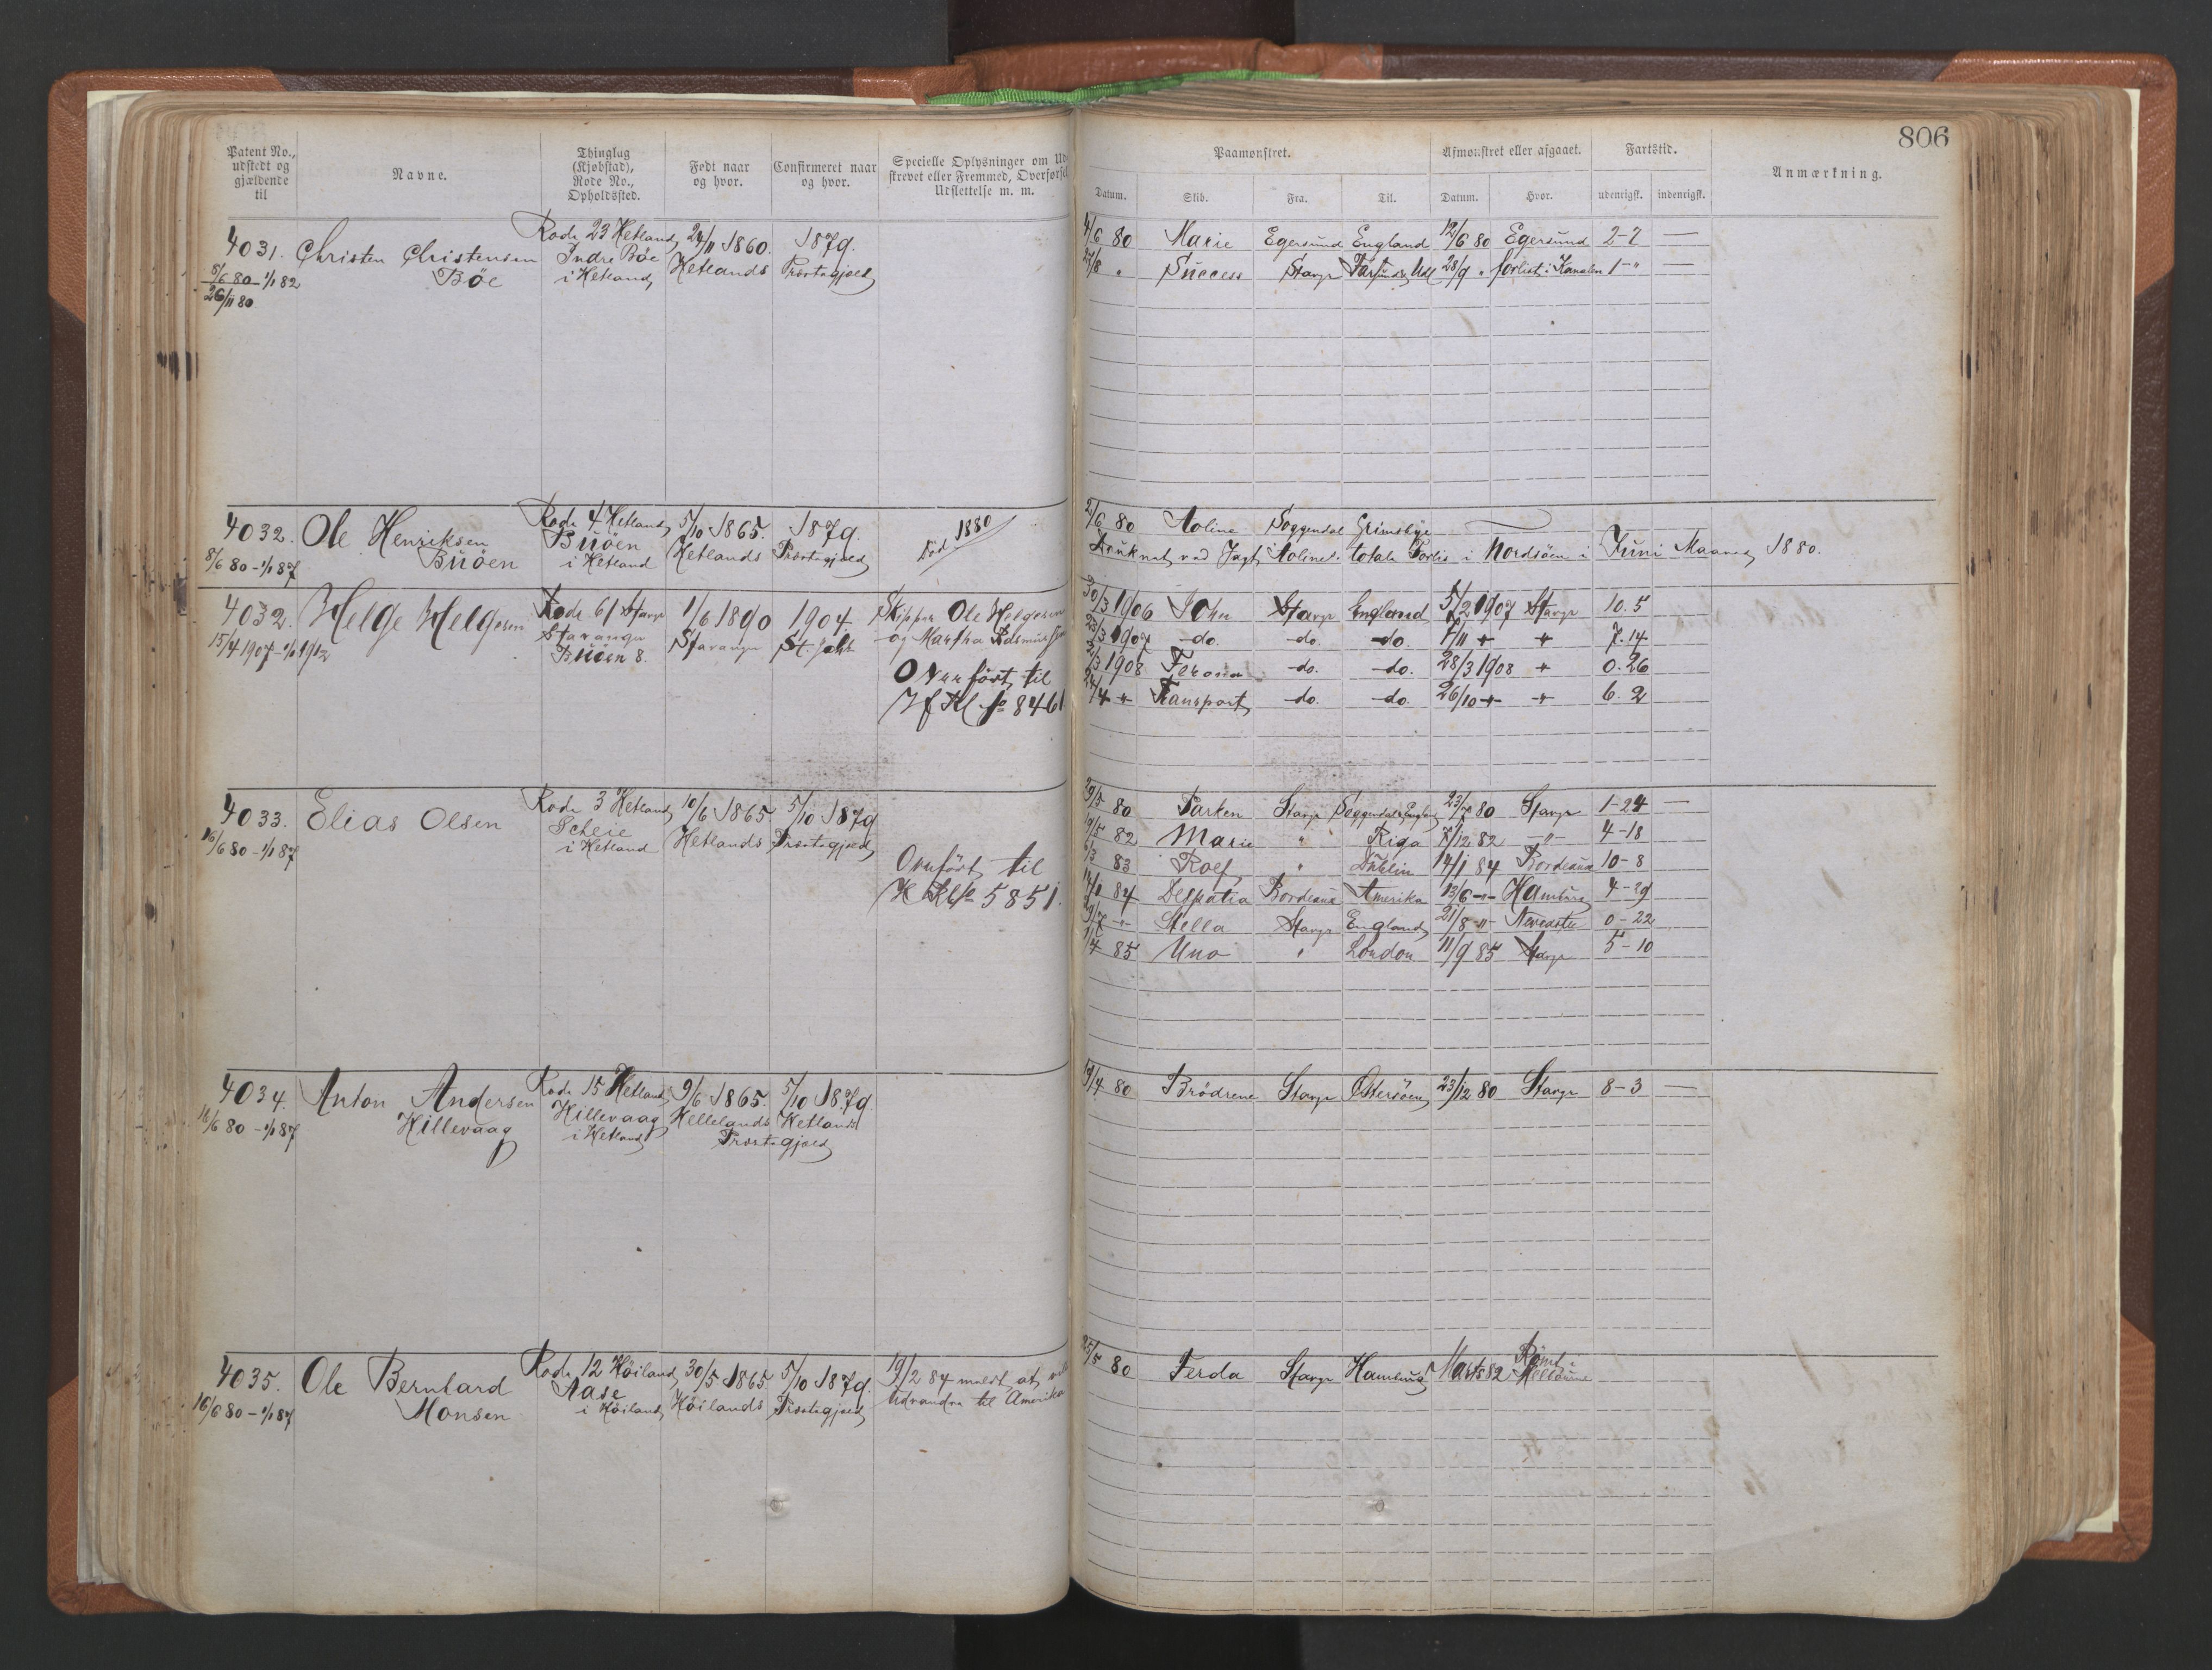 806
Patent No., udstedt og gjældende til
Navne.
Thinglag (Kjøbstad), Rode No., Opholdssted.
Født naar og hvor.
Confirmeret naar og hvor.
Specielle Oplysninger om Ud
skrevet eller Fremmed, Overførsel
Udslettelse m. m.
Paamønstret.
Afmønstret eller afgaaet.
Fartstid.
Anmærkning.
Datum. Skib. Fra. Til. Datum. Hvor. udenrigsk. indenrigsk.
4031. Christen Christensen Rode 23 Hetland 24/11 1860. 1879.
Böe Indre Böe Hetlands Præstegjæld
8/6 80 - 1/1 82 i Hetland
26/11 80
4/6 80 Marie Egersund England 12/6 80 Egersund 2-7 —
Success Stavgr 28/9 " forlist i Kanalen 1-" —
4032. Ole Henriksen Rode 4 Hetland 5/10 1865. 1879. Död 1880
Buöen Buöen Hetlands Præstegjæld
8/6 80 - 1/1 87 i Hetland
2/6 80 Aoline Soggendal Grimsbye
Druknet ved Jagt Aolines totale Forlis i Nordsöen i Juni Maaned 1880.
4032. Helge Helgesen Rode 61 Stavgr 1/6 1890 1904 Skipper Ole Helgesen
15/4 1907 - 1/1 1912 Stavanger Stavanger St. Joh og Martha
Buöen 8.
Overfört til
Hf Kl № 8461
30/3 1906 John Stavgr England 5/2 1907 Stavgr 10.5
23/3 1907 -do. -do. -do. 7/11 " " 7.14
2/3 1908 -do. -do. 28/3 1908 " 0.26
24/4 " Transport -do. -do. 26/10 " " 6.2
4033. Elias Olsen Rode 3 Hetland 10/6 1865 5/10 1879
16/6 80 - 1/1 87 Scheie Hetlands Præstegjæld
i Hetland
Overfört til
5851.
29/5 80 Parken Stavgr Soggendal England 23/7 80 Stavgr 1-24 —
9/5 82 Marie " Riga 7/12 82 -"- 4-18
6/3 83 Rolf " Dublin 14/1 84 Bordeaux 10-8
14/1 84 Bordeaux Amerika 13/6 -"- Hamburg 4-29
29/7 -"- Stella Stavgr England 21/8 -"- 0-22
1/4 85 Uno " London 11/9 85 Stavgr 5-10
4034. Anton Andersen Rode 15 Hetland 9/6 1865. 5/10 1879.
Hillevaag Hillevaag Hellelands Hetlands
16/6 80 - 1/1 87 i Hetland Præstegjæld
19/4 80 Brödrene Stavgr Östersöen 23/12 80 Stavgr 8-3 —
4035. Ole Bernhard Rode 12 Höiland 30/5 1865 5/10 1879. 19/2 84 meldt at ville
Monsen Aase Höilands Præstegjæld udvandre til Amerika
16/6 80 - 1/1 87 i Höiland
25/5 80 Ferda Stavgr Hamburg Marts 82 Römt i Melbourne